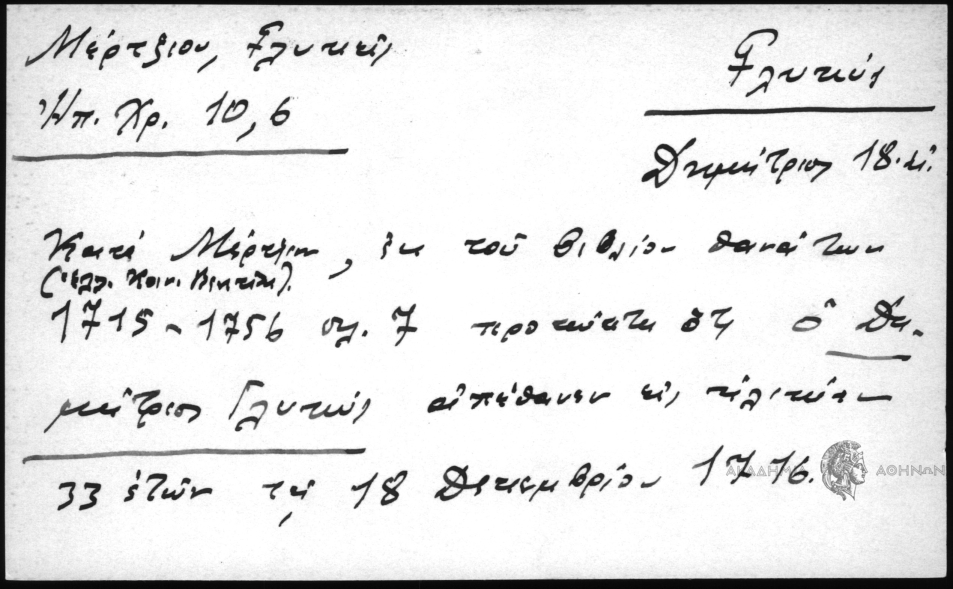 Μέρτζιου, Γλυκεῖς
Ἠπ. Χρ. 10, 6
Γλυκύς
Δημήτριος 18. αἰ.
Κατά Μέρτζιον, ἐκ τοῦ βιβλίου θανάτων
(Ἑλλ. Κοιν. Βενετίας).
1715-1756 σελ. 7 προκύπτει ὅτι ὁ Δη-
μήτριος Γλυκύς ἀπέθανεν εἰς ἡλικίαν
33 ἐτῶν τῇ 18 Δεκεμβρίου 1716.
ΑΚΑΔΗΜΙΑ ΑΘΗΝΩΝ